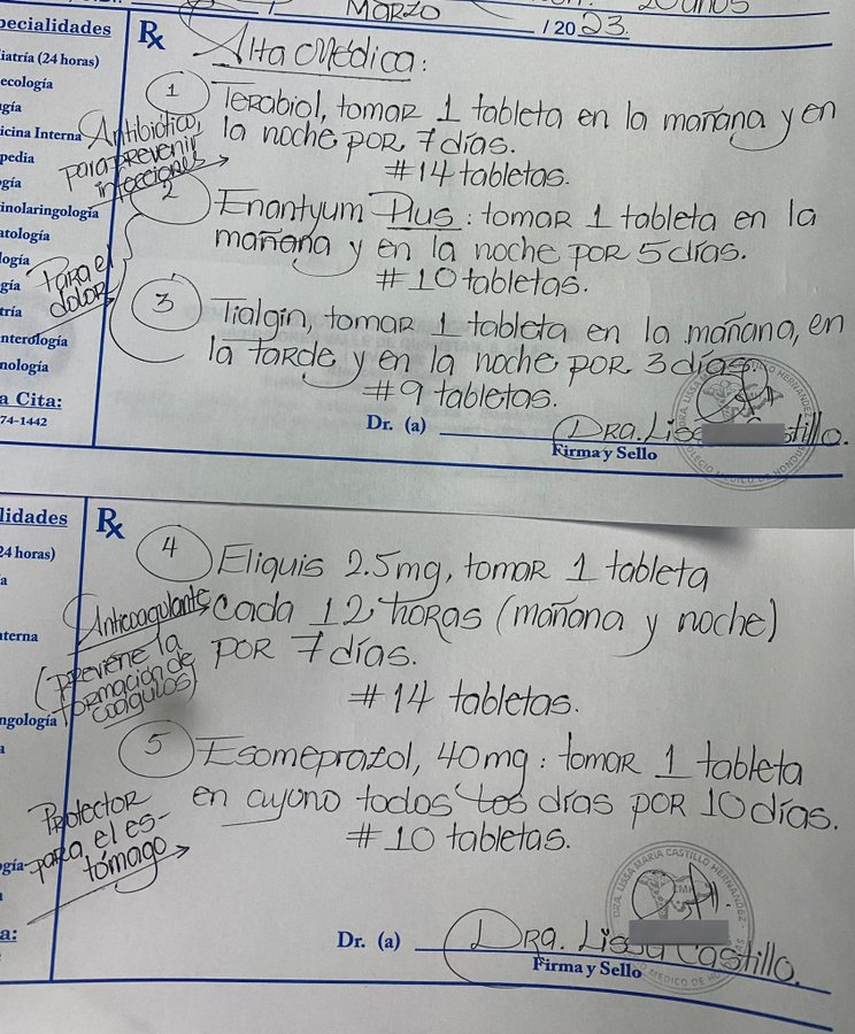 MARZO / 2023.
20 años
pecialidades
iatría (24 horas)
ecología
gía
icina Interna
pedia
gía
inolaringología
atología
logía
gía
tría
nterología
nología
a Cita:
74-1442
Rx
Alta Médica:
1 Terabiol, tomar 1 tableta en la mañana y en
la noche por 7 días.
#14 tabletas.
Antibiótico,
para prevenir
infecciones
2 Enantyum Plus: tomar 1 tableta en la
mañana y en la noche por 5 días.
#10 tabletas.
Para el
dolor
3 Tialgin, tomar 1 tableta en la mañana, en
la tarde y en la noche por 3 días.
#9 tabletas.
Dr. (a) Dra. Lis stillo.
Firma y Sello
lidades
24 horas)
a
terna
ngología
a
gía
a:
Rx
4 Eliquis 2.5mg, tomar 1 tableta
cada 12 horas (mañana y noche)
por 7 días.
#14 tabletas.
Anticoagulante
(previene la
formación de
coágulos)
5 Esomeprazol, 40mg: tomar 1 tableta
en ayuno todos los días por 10 días.
#10 tabletas.
Protector
para el es-
tómago
Dr. (a) Dra. Lissa Castillo.
Firma y Sello
DRA. LISSA MARIA CASTILLO HERNANDEZ